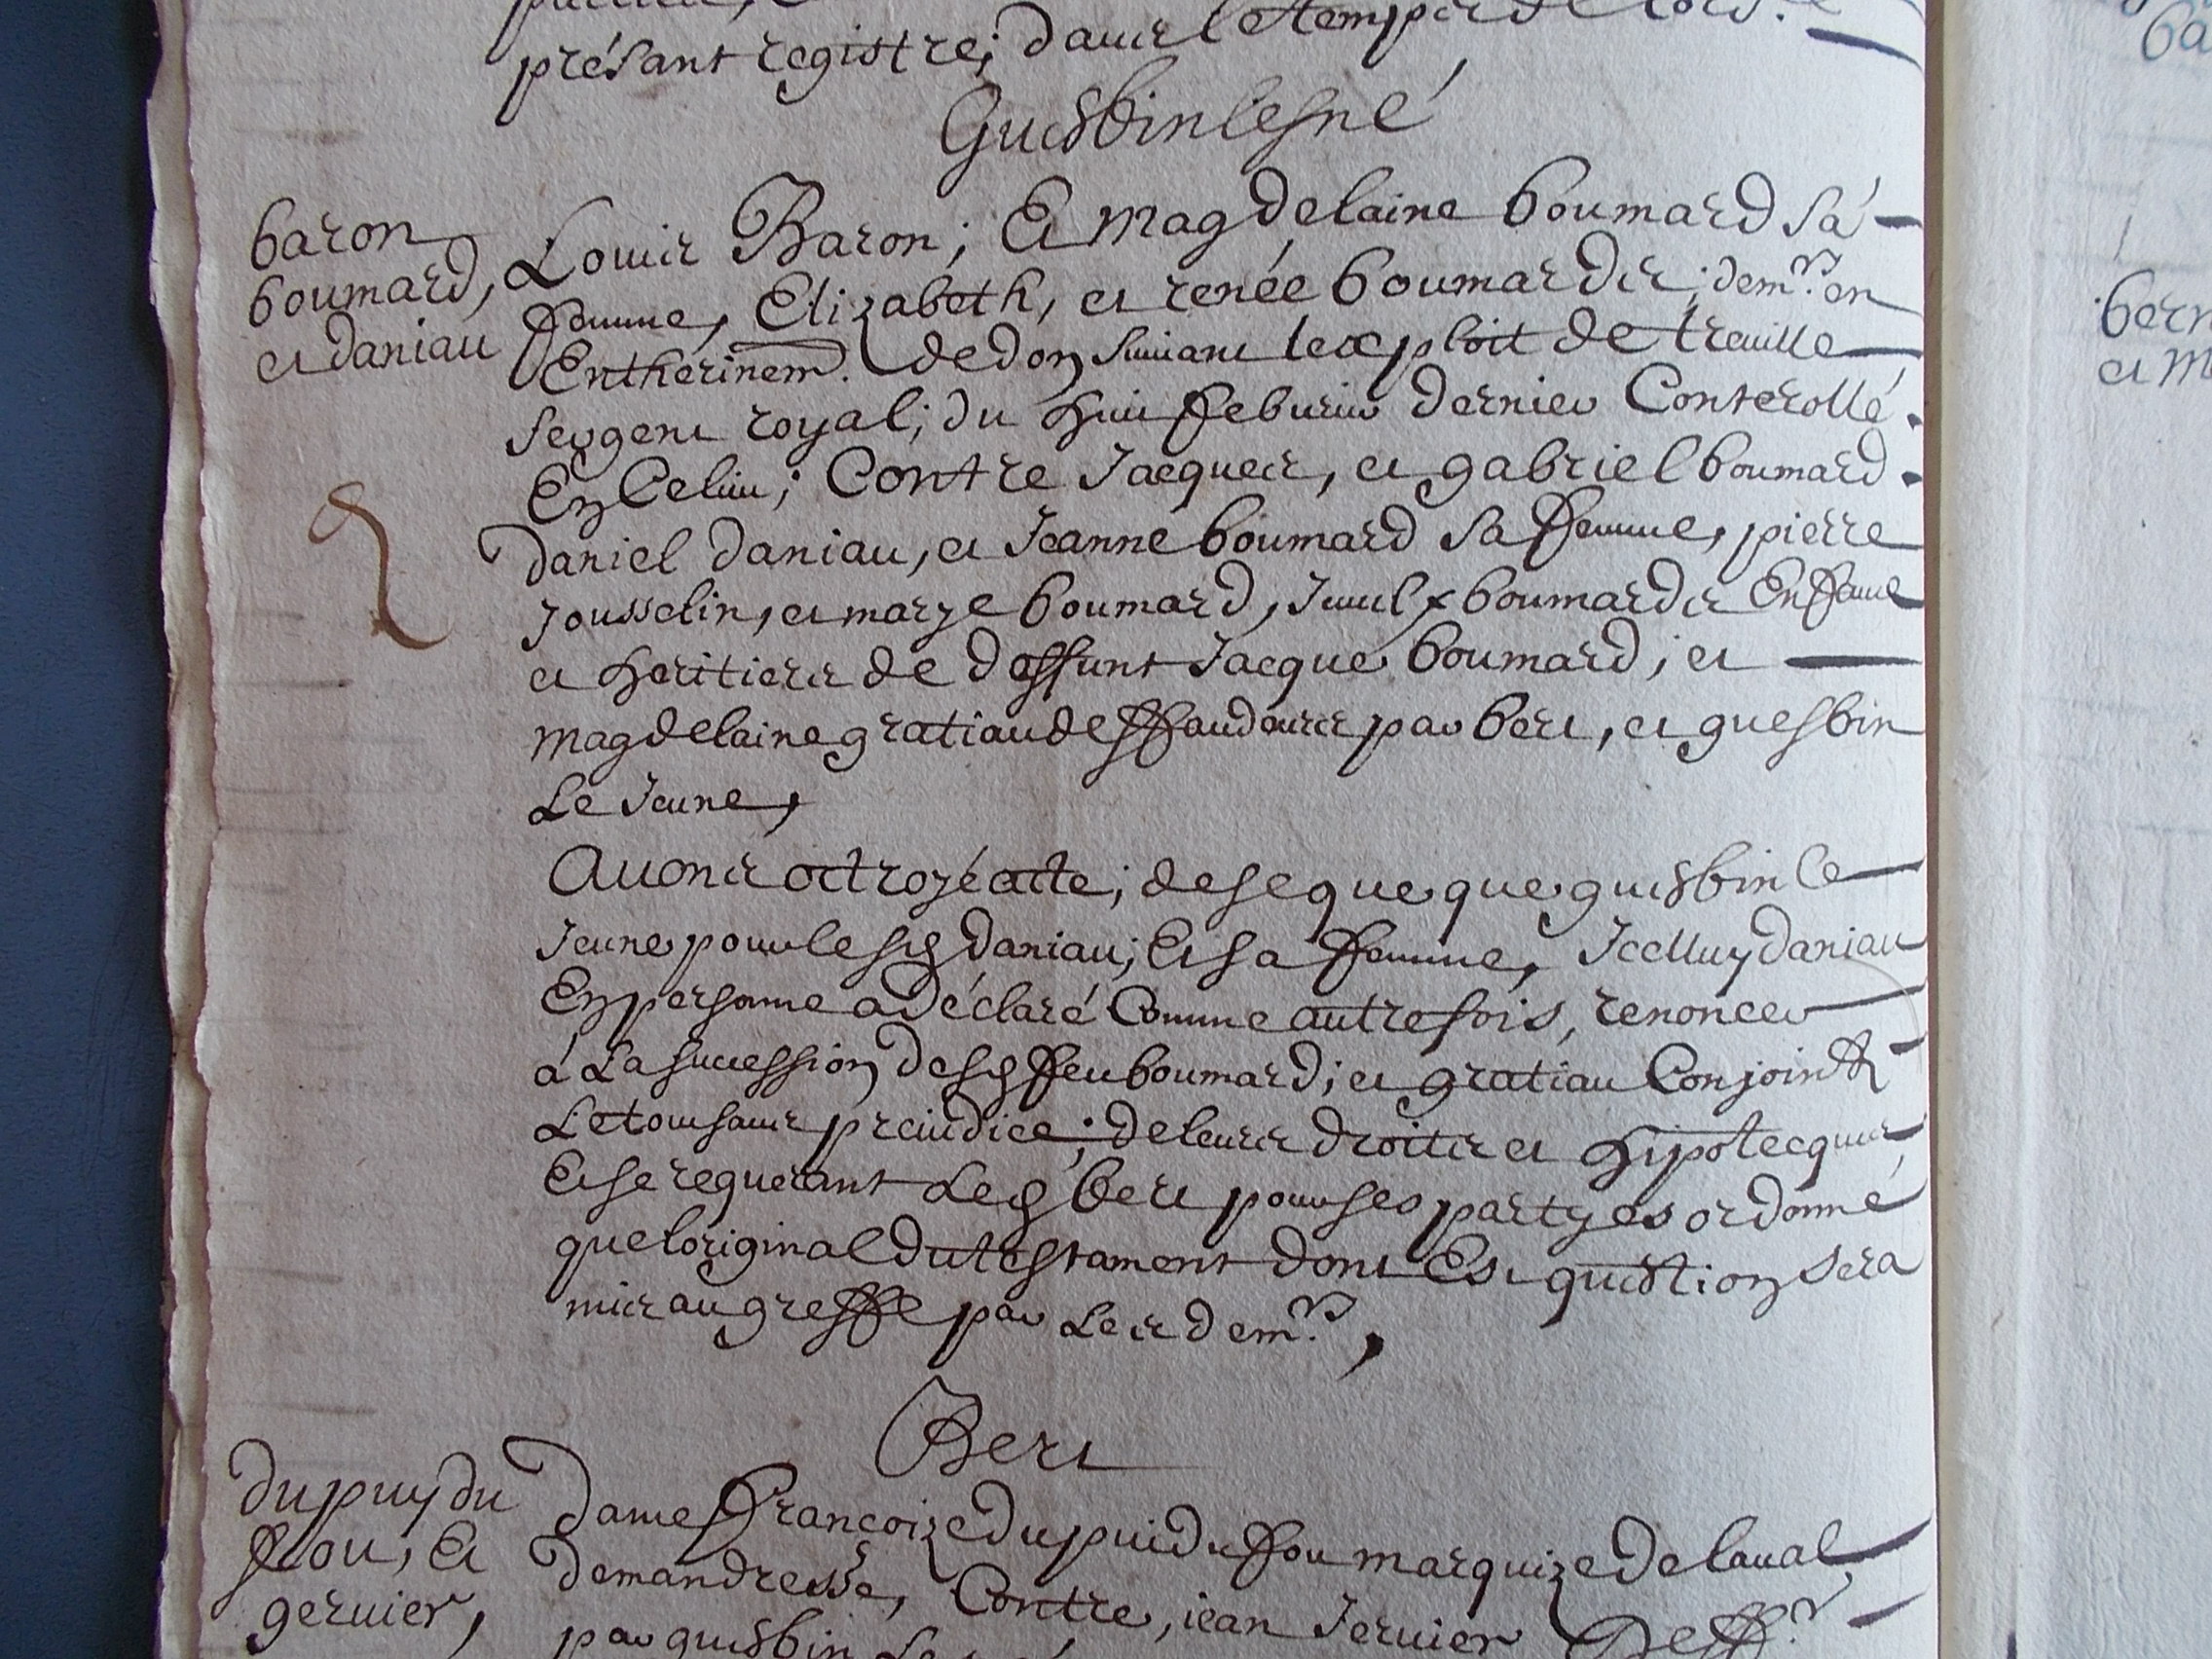 présant registre;
Guesbin lesné
baron
boumard,
et daniau
Louis Baron; Et Magdelaine boumard sa
femme, Elizabeth, et renée boumardes; dem.rs en
Entherinem. de don suivant lexploit de treuille
sergent royal; du huit feburier dernier Conterollé
En Celieu; Contre Jacques, et gabriel boumard
daniel daniau, et Jeanne boumard sa femme, pierre
Jousselin, et marye boumard, boumardes Enfans
et heritiers de deffunt Jacque boumard; et
magdelaine gratiau deffandeurs par bert, et guesbin
Le Jeune,
Avons octroyé acte; de se que que guesbin le
Jeune pour le sd daniau; Et sa femme, Icelluy daniau
En personne a déclaré Comme autresfois, renoncer
á La succession desd feu boumard; et gratiau Conjoints
Le tout sans preiudice; de leurs droits et hipotecques
Et se requerant Led bert pour ses partyes ordonné
que loriginal du testament dont Est question sera
mis au greffe par Les dem.rs,
Bert
dupuy du
fou, Et
geruier,
dame Françoize du puidu fou marquize de laual
demandresse, Contre, iean Jeruier deff.r
par guesbin